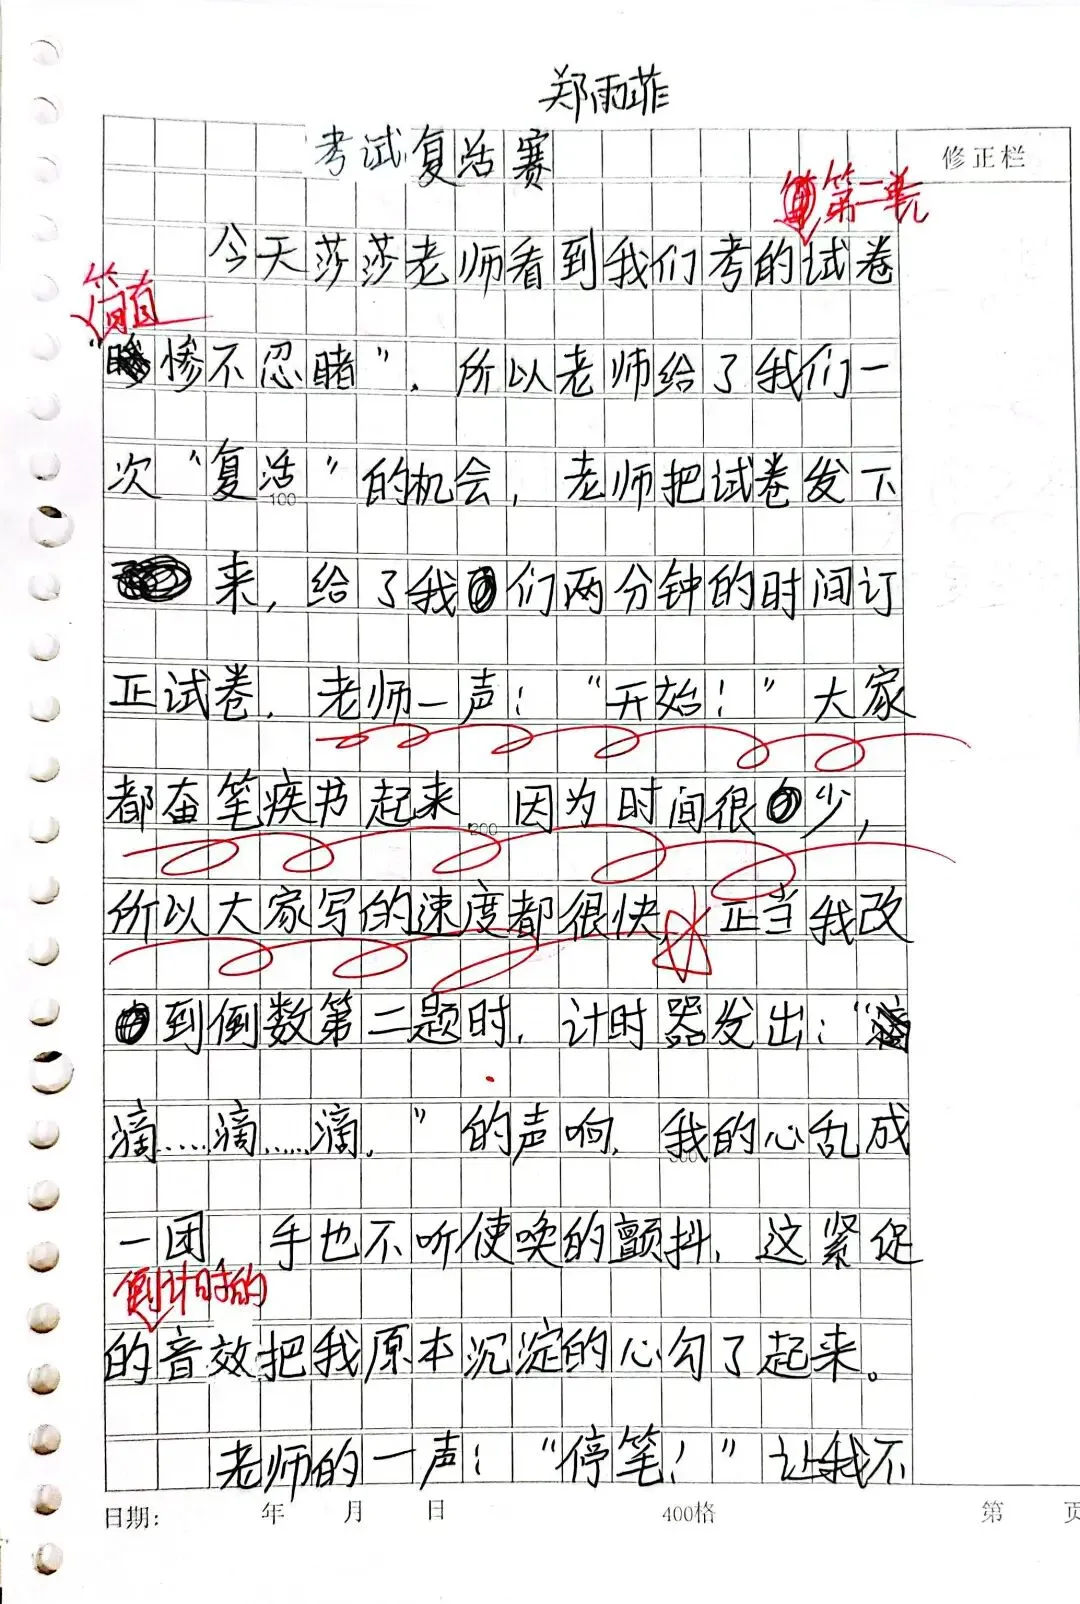 郑雨菲
考试复活赛
修正栏
第二单元
今天莎莎老师看到我们考的试卷
简直
“惨不忍睹”.所以老师给了我们一
次“复活”的机会，老师把试卷发下
100
来，给了我们两分钟的时间订
正试卷.老师一声：“开始！”大家
都奋笔疾书起来 因为时间很少，
200
所以大家写的速度都很快 正当我改
到倒数第二题时.计时器发出：“
滴……滴……滴.”的声响.我的心乱成
一团，手也不听使唤的颤抖.这紧促
倒计时的
的音效把我原本沉淀的心勾了起来。
老师的一声：“停笔！”让我不
日期： 年 月 日 400格 第 页